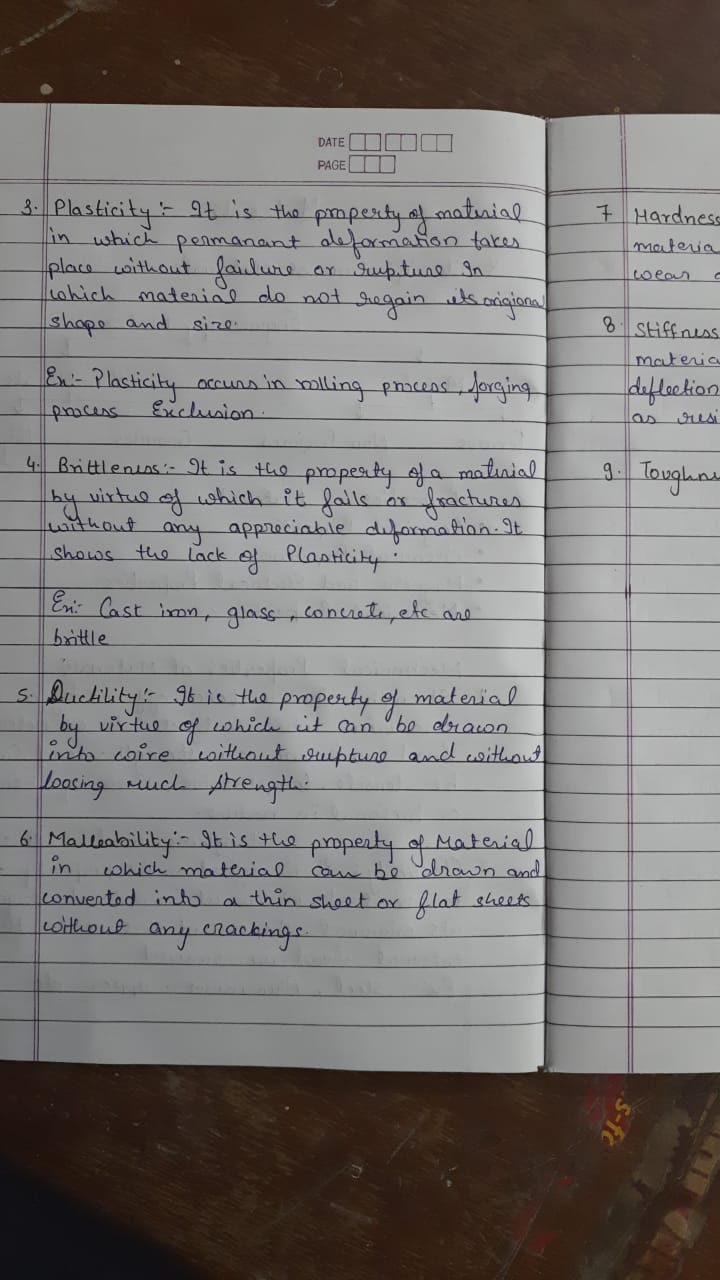 DATE
PAGE
3. Plasticity :- It is the property of material
in which permanant deformation takes
place without failure or rupture In
which material do not regain its origional
shape and size.
Ex:- Plasticity occurs in rolling process, forging
process Exclusion.
4. Brittleness:- It is the property of a material
by virtue of which it fails or fractures
without any appreciable deformation. It
shows the lack of Plasticity.
Ex:- Cast iron, glass, concrete, etc are
brittle
5. Ductility:- It is the property of material
by virtue of which it can be drawn
into wire without rupture and without
loosing much strength.
6. Malleability:- It is the property of Material
in which material can be drawn and
converted into a thin sheet or flat sheets
without any crackings.
7 Hardness
materia
wear
8. Stiffness
materia
deflection
as resi
9. Toughne
S-fc